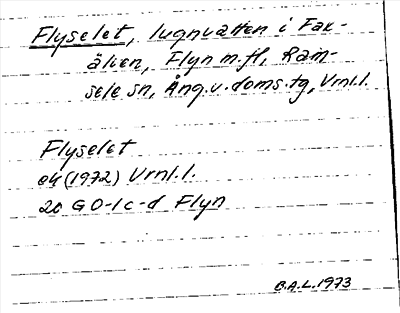 Flyselet, lugnvatten i Fax-
älven, Flyn m.fl, Ram-
sele sn, Ång.v.doms.tg, Vrnl.l.
Flyselet
ek (1972) Vrnl.l.
20 G 0-1 c-d Flyn
B.A.L. 1973